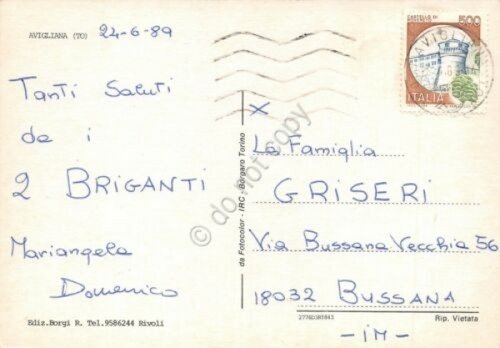 AVIGLIANA (TO) 24-6-89
Tanti Saluti
da i
2 BRIGANTI
Mariangela
Domenico
Ediz.Borgi R. Tel.9586244 Rivoli
da Fotocolor - IRC - Borgaro Torino
CASTELLO DI
500
ITALIA
AVIGLIANA
x
La Famiglia
GRISERI
Via Bussana Vecchia 56
18032 BUSSANA
Rip. Vietata
- IM -
© do not copy